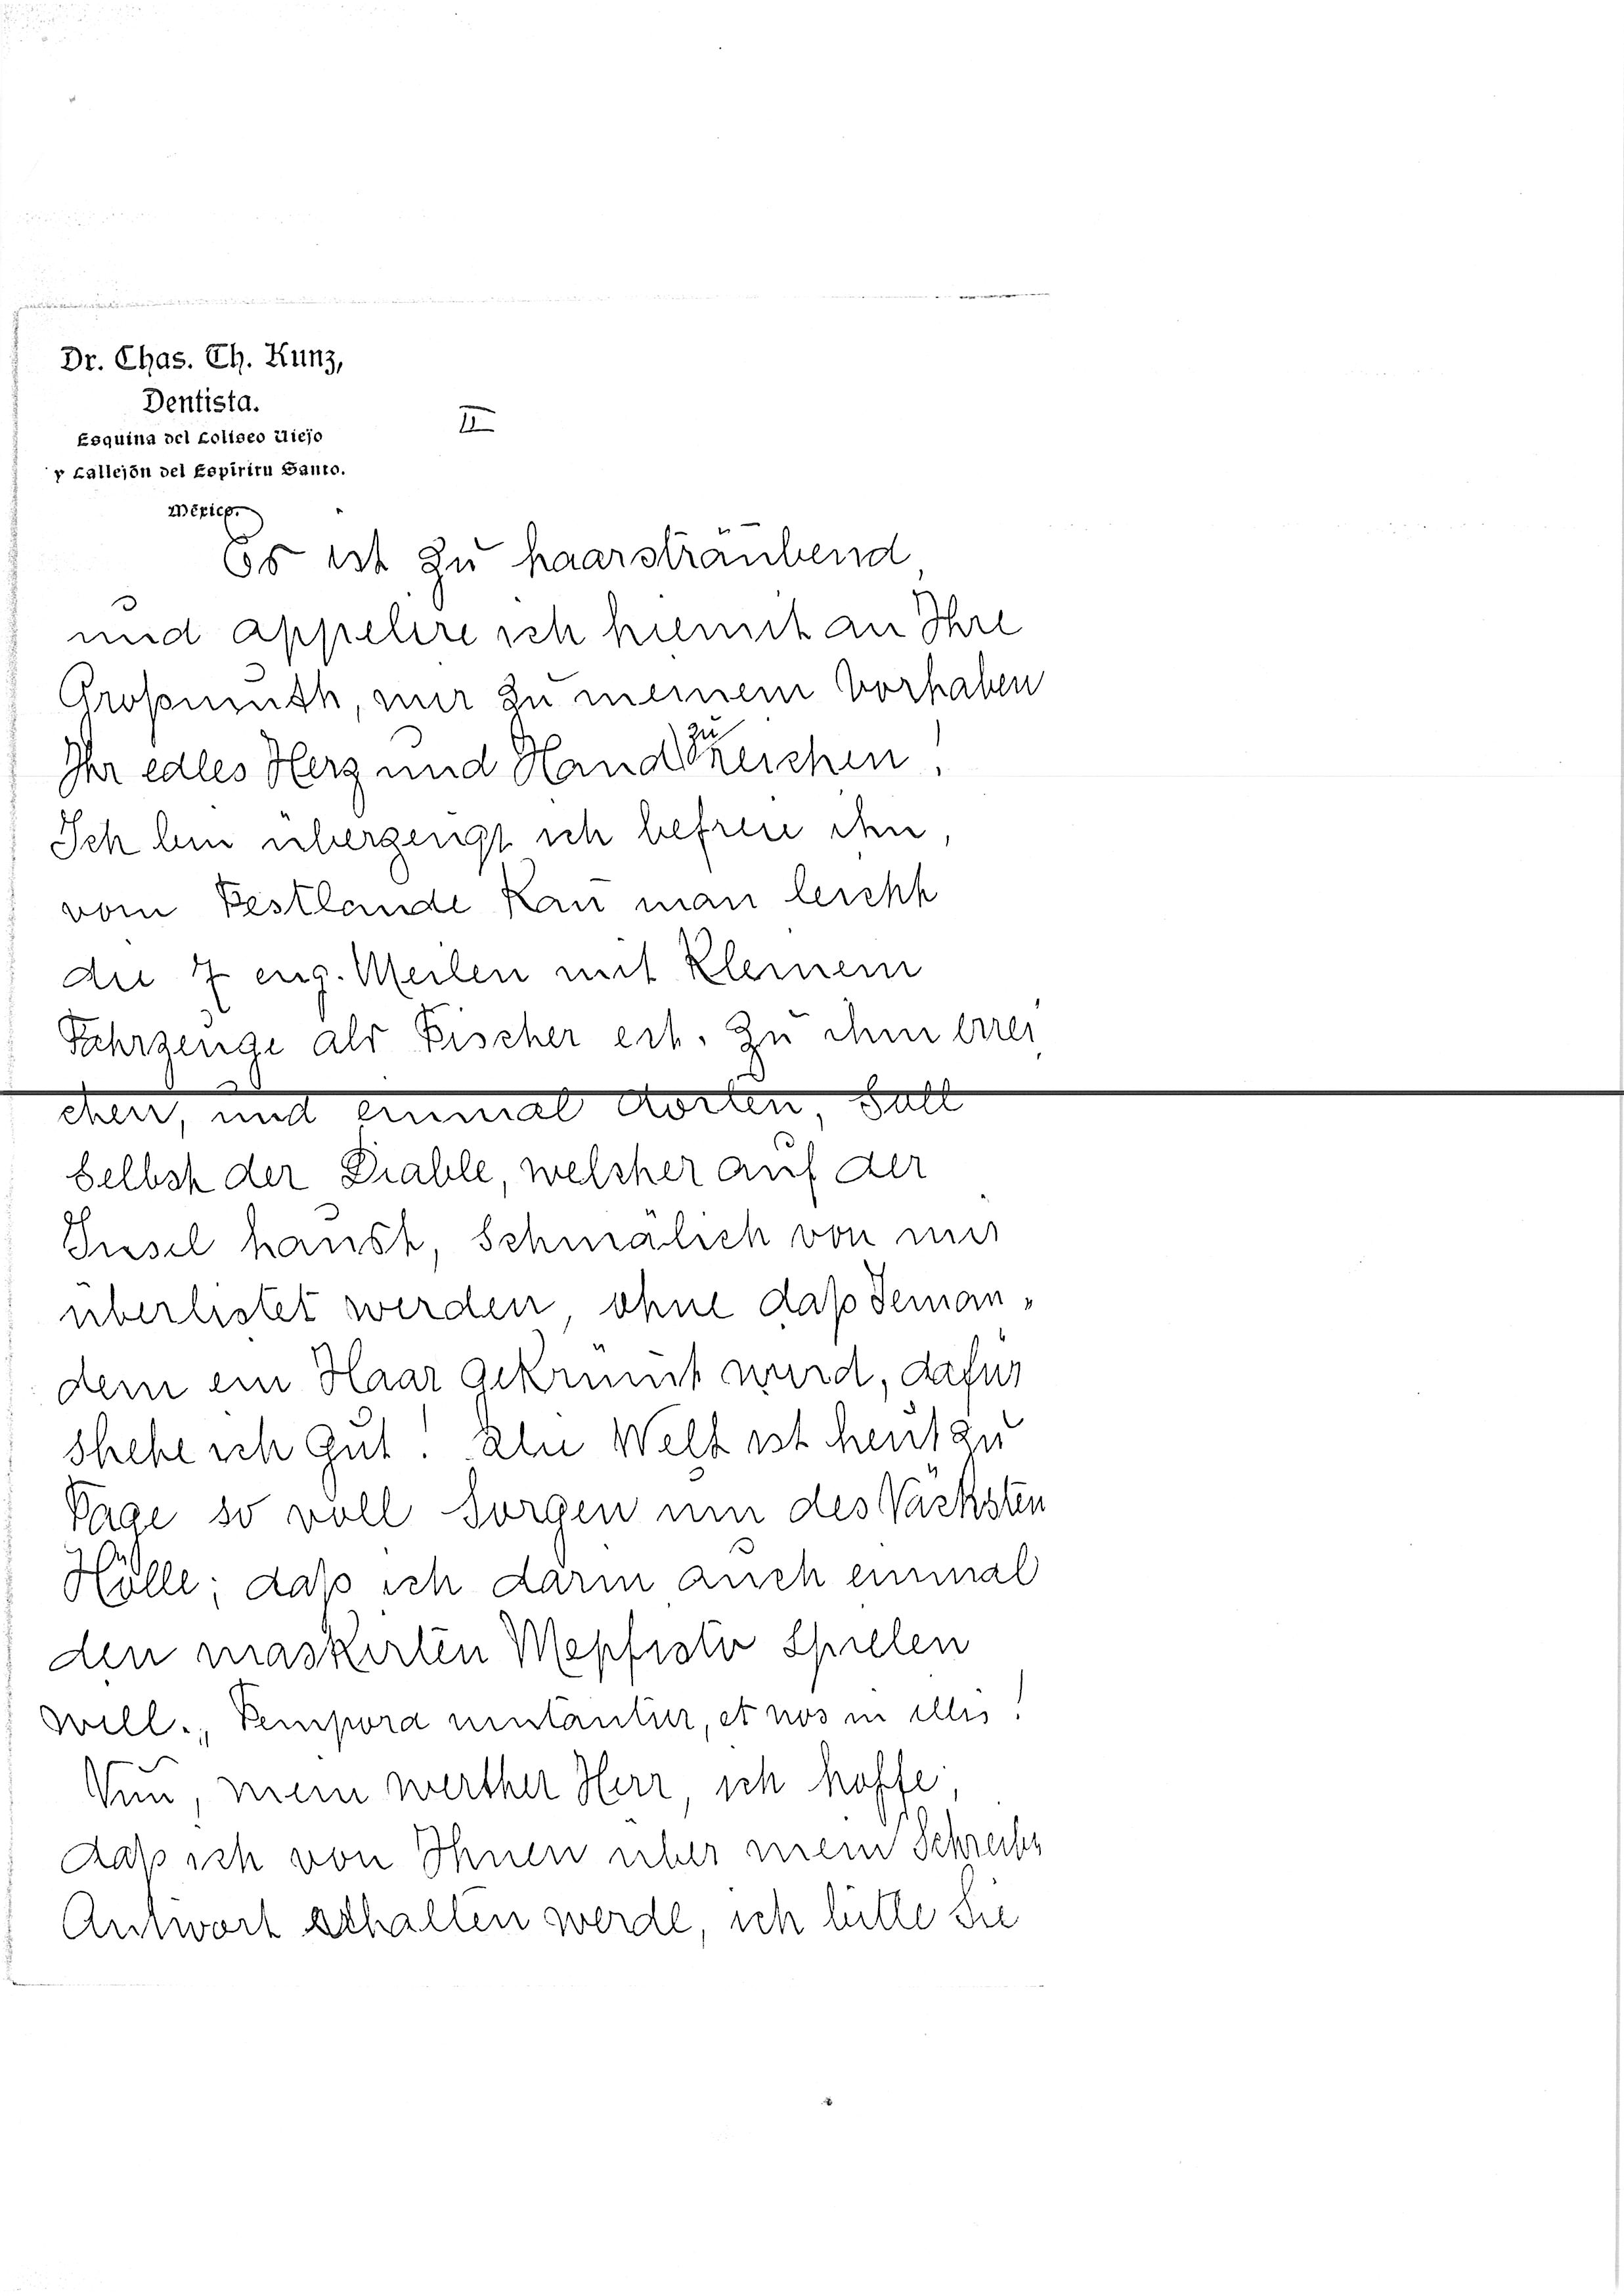 Dr. Chas. Th. Kunz,
Dentista.
Esquina del Coliseo Viejo
y Callejón del Espíritu Santo.
México.
II
Es ist zu haarsträubend,
und appelire ich hiemit an Ihre
Großmuth, mir zu meinem Vorhaben
Ihr edles Herz und Hand zu reichen!
Ich bin überzeugt ich befreie ihn,
vom Festlande kan̄ man leicht
die 7 eng. Meilen mit kleinem
Fahrzeuge als Fischer ect. zu ihm errei
chen, und einmal dorten, Soll
Selbst der Diable, welcher auf der
Insel haust, Schmälich von mir
überlistet werden, ohne daß Jeman-
dem ein Haar gekrüm̄t wird, dafür
stehe ich gut! Die Welt ist heut zu
Tage so voll Sorgen um des Nächsten
Hölle; daß ich darin auch einmal
den maskirten Mepfisto Spielen
will. „Tempora mutantur, et nos in illis!
Nun, mein werther Herr, ich hoffe,
daß ich von Ihnen über mein Schreibn
Antwort erhalten werde, ich bitte Sie